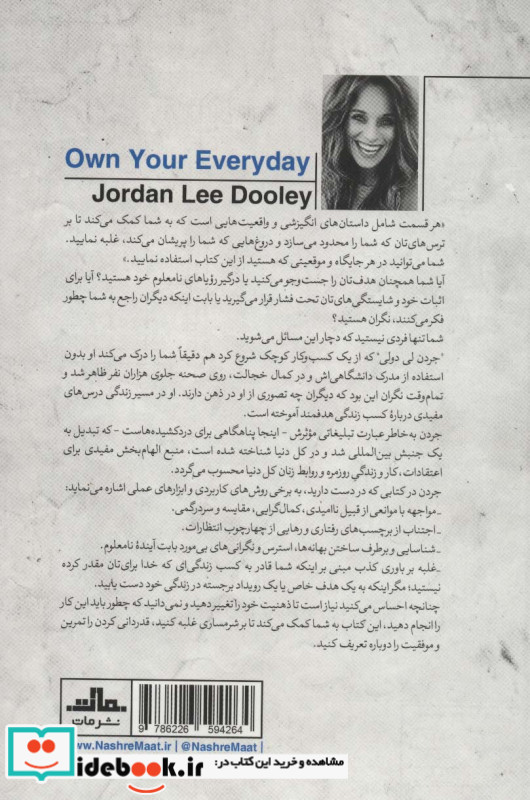 Own Your Everyday
Jordan Lee Dooley
«هر قسمت شامل داستان‌های انگیزشی و واقعیت‌هایی است که به شما کمک می‌کند تا بر
ترس‌های‌تان که شما را محدود می‌سازد و دروغ‌هایی که شما را پریشان می‌کند، غلبه نمایید.
شما می‌توانید در هر جایگاه و موقعیتی که هستید از این کتاب استفاده نمایید.»
آیا شما همچنان هدف‌تان را جست‌وجو می‌کنید یا درگیر رؤیاهای نامعلوم خود هستید؟ آیا برای
اثبات خود و شایستگی‌های‌تان تحت فشار قرار می‌گیرید یا بابت اینکه دیگران راجع به شما چطور
فکر می‌کنند، نگران هستید؟
شما تنها فردی نیستید که دچار این مسائل می‌شوید.
"جردن لی دولی" که از یک کسب‌وکار کوچک شروع کرد هم دقیقاً شما را درک می‌کند او بدون
استفاده از مدرک دانشگاهی‌اش و در کمال خجالت، روی صحنه جلوی هزاران نفر ظاهر شد و
تمام‌وقت نگران این بود که دیگران چه تصوری از او در ذهن دارند. او در مسیر زندگی درس‌های
مفیدی دربارهٔ کسب زندگی هدفمند آموخته است.
جردن به‌خاطر عبارت تبلیغاتی مؤثرش - اینجا پناهگاهی برای دردکشیده‌هاست - که تبدیل به
یک جنبش بین‌المللی شد و در کل دنیا شناخته شده است، منبع الهام‌بخش مفیدی برای
اعتقادات، کار و زندگیِ روزمره و روابط زنان کل دنیا محسوب می‌گردد.
جردن در کتابی که در دست دارید، به برخی روش‌های کاربردی و ابزارهای عملی اشاره می‌نماید:
ـ مواجهه با موانعی از قبیل ناامیدی، کمال‌گرایی، مقایسه و سردرگمی.
ـ اجتناب از برچسب‌های رفتاری و رهایی از چهارچوب انتظارات.
ـ شناسایی و برطرف ساختن بهانه‌ها، استرس و نگرانی‌های بی‌مورد بابت آیندهٔ نامعلوم.
ـ غلبه بر باوری کذب مبنی بر اینکه شما قادر به کسب زندگی‌ای که خدا برای‌تان مقدر کرده
نیستید؛ مگر اینکه به یک هدف خاص یا یک رویداد برجسته در زندگی خود دست یابید.
چنانچه احساس می‌کنید نیاز است تا ذهنیت خود را تغییر دهید و نمی‌دانید که چطور باید این کار
را انجام دهید، این کتاب به شما کمک می‌کند تا بر شرمسازی غلبه کنید، قدردانی کردن را تمرین
و موفقیت را دوباره تعریف کنید.
مات
نشر مات
9 786226 594264
www.NashreMaat.ir | @NashreMaat |
مشاهده و خرید این کتاب در:
idebook.ir